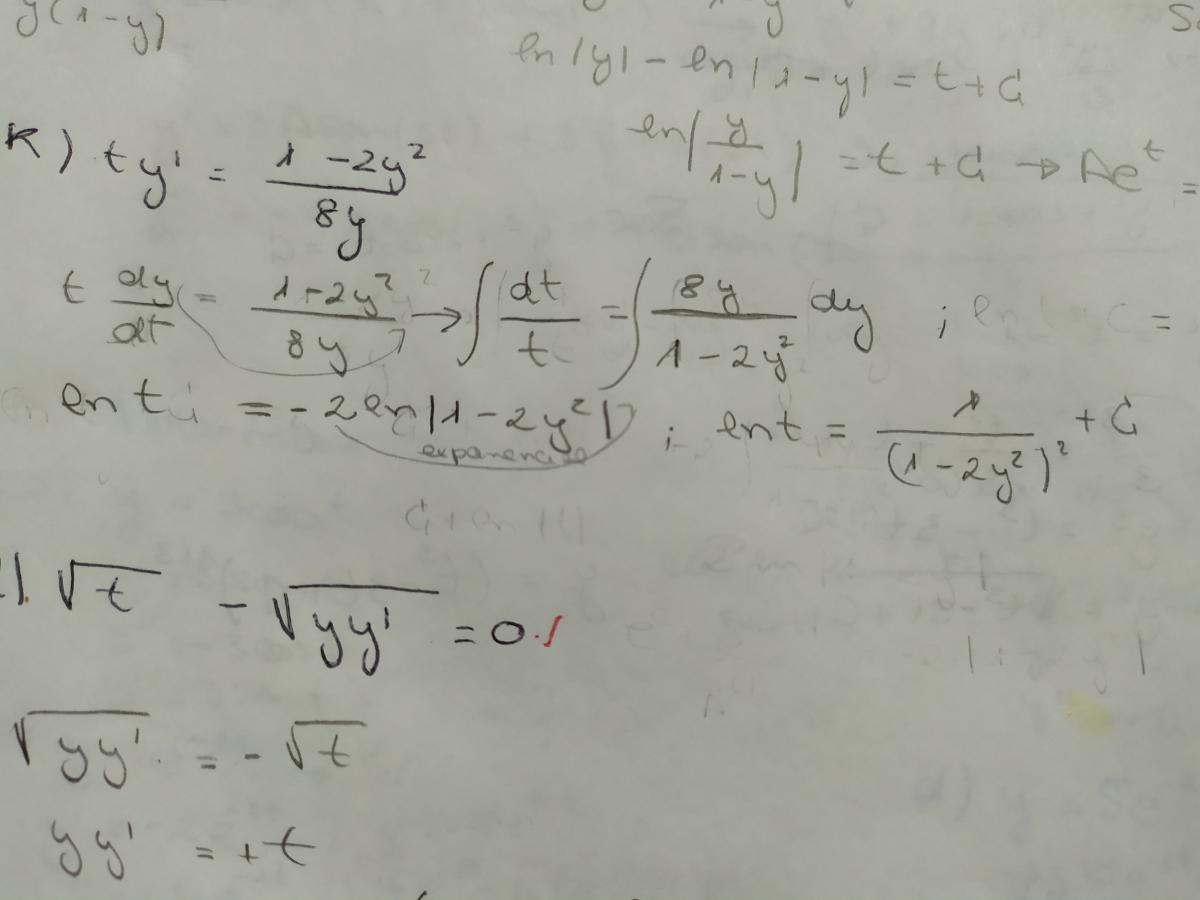 y(1-y)
ln|y| - ln|1-y| = t + C
ln|y/(1-y)| = t + C → Ae^t =
K) ty' = (1-2y²)/8y
t dy/dt = (1-2y²)/8y → ∫ dt/t = ∫ 8y/(1-2y²) dy ;
ln t = -2 ln|1-2y²| ; ln t = 1/(1-2y²)² + C
l). √t - √(yy') = 0.
√(yy') = -√t
yy' = +t